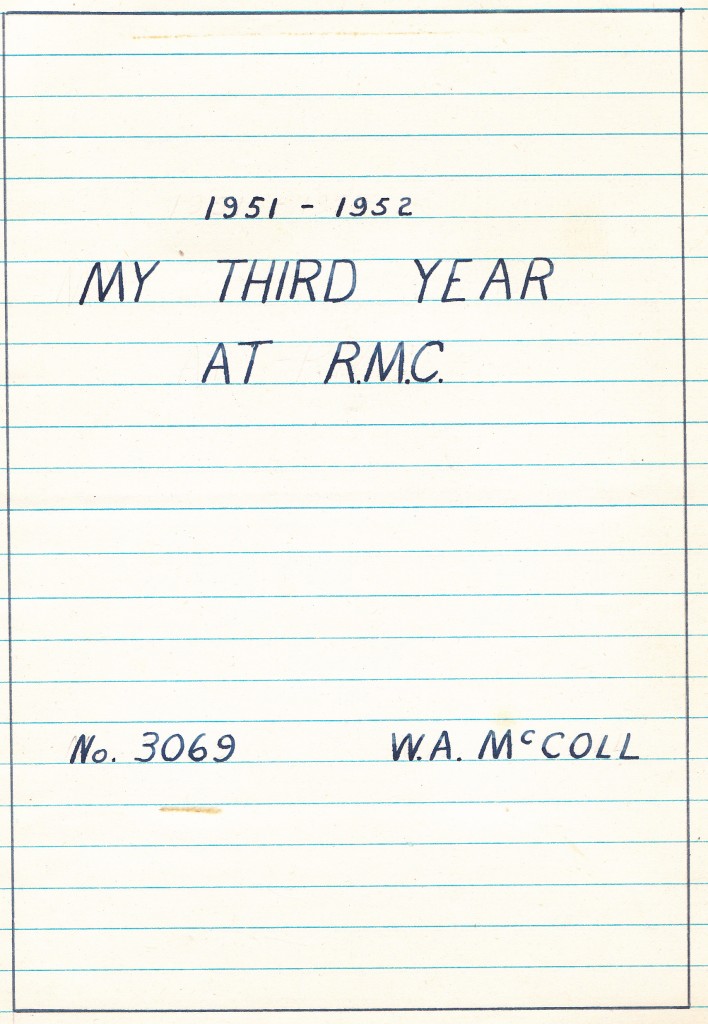 1951 - 1952
MY THIRD YEAR
AT R.M.C.
No. 3069 W.A. McCOLL